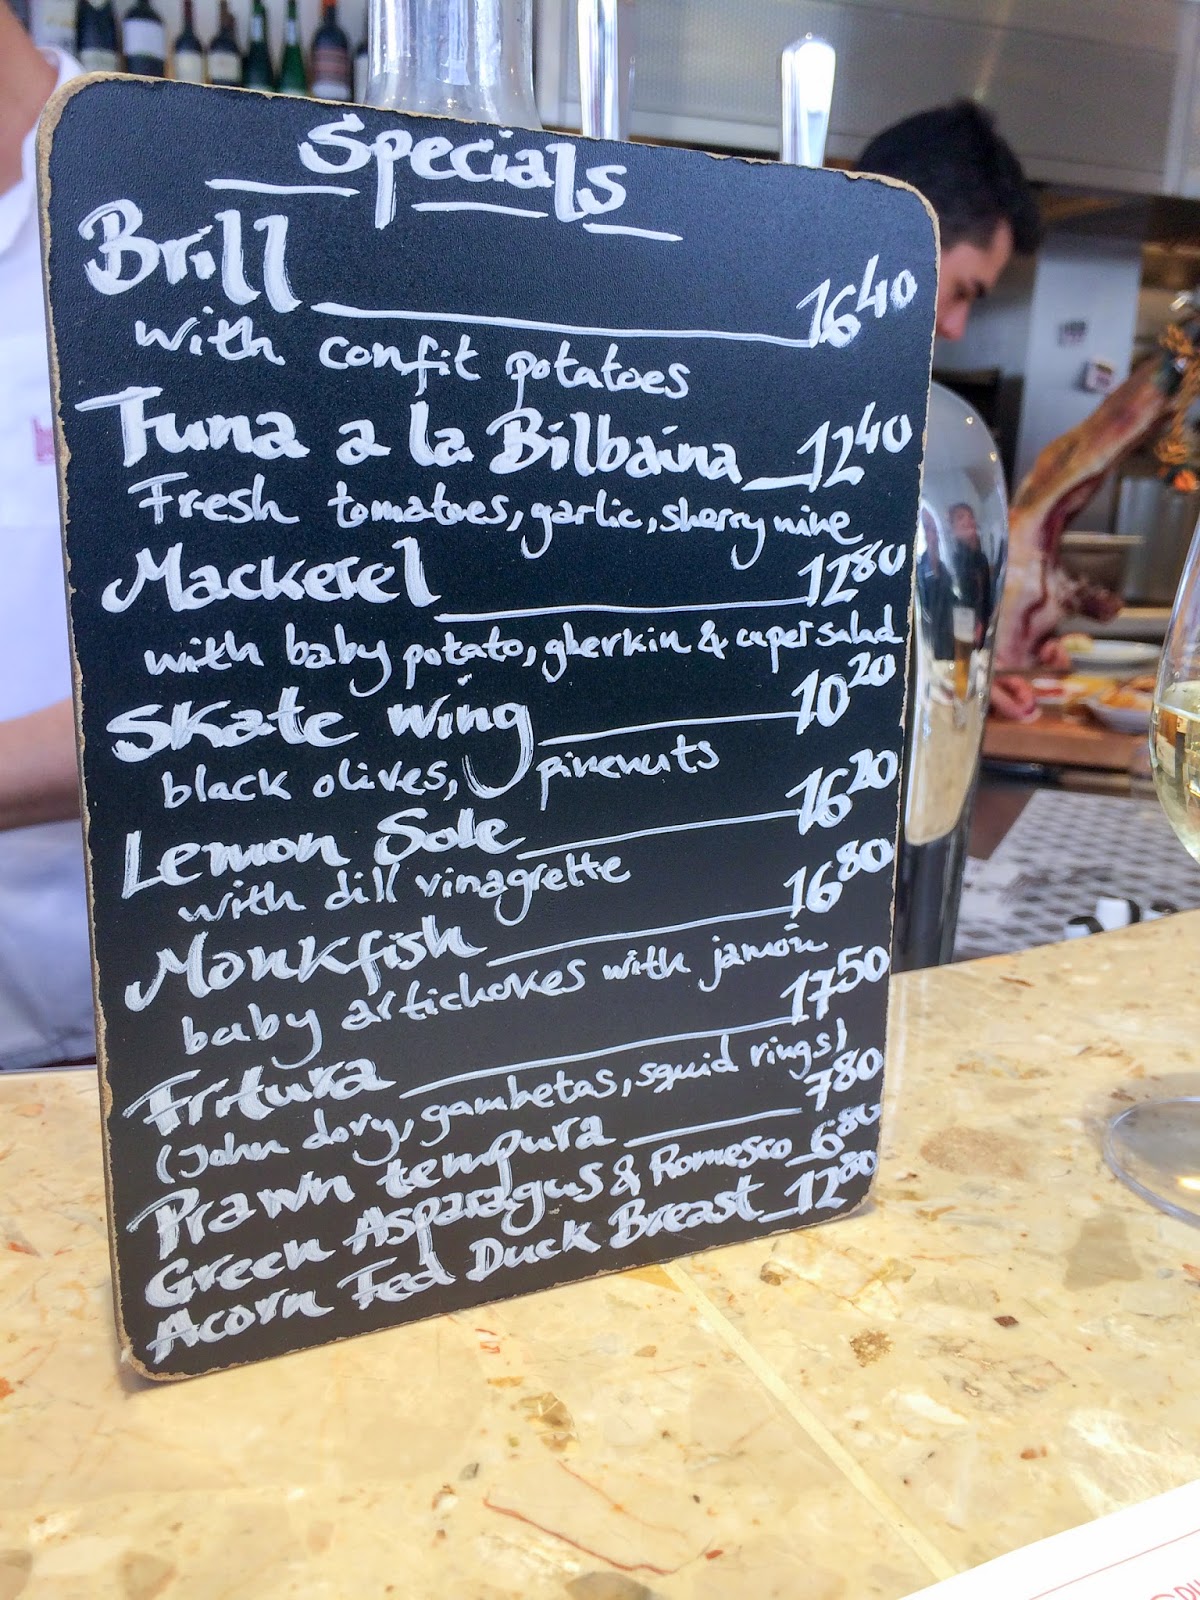 Specials
Brill 16 40
with confit potatoes
Tuna a la Bilbaina 12 40
Fresh tomatoes, garlic, sherry wine
Mackerel 12 80
with baby potato, gherkin & caper salad
Skate wing 10 20
black olives, pinenuts
Lemon Sole 16 20
with dill vinagrette
Monkfish 16 80
baby artichokes with jamón
Fritura 17 50
(John dory, gambetas, squid rings)
Prawn tempura 7 80
Green Asparagus & Romesco 6 80
Acorn Fed Duck Breast 12 80